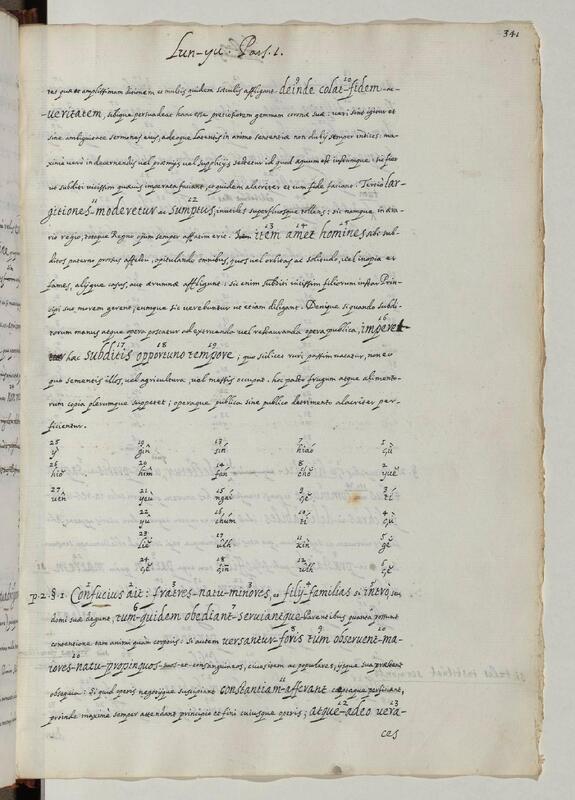 341
Lun-yu. Pars. 1.
tes quae et amplissimam ditionem et multis quidem saeculis affligant. deinde colat fidem ac
veritatem, sibique persuadeat hanc esse pretiosiorem gemmam coronae suae: veri sunt igitur et
sine ambiguitate sermones eius, adeoque latentis in animo sententiae non dubij semper indices: ma-
xime vero in decernendis vel praemijs, vel supplicijs
ut subditi vicissim quaevis imperata faciant, et quidem alacriter et cum fide faciant. Tertio lar-
gitiones moderetur ac sumptus, inutiles superfluosque tollens: sic namque in aera-
rio regio, totoque Regno opum semper affatim erit. item amet homines, ac sub-
ditos paterno prorsus affectu, opitulando omnibus, quos vel orbitas ac solitudo, vel inopia et
fames, alijque casus, aut aerumnae affligunt: sic enim subditi vicissim filiorum instar Prin-
cipi suo morem gerent, eumque sic verebuntur ut etiam diligant. Denique siquando subdi-
torum manus atque opera poscatur ad extruenda vel restauranda opera publica, imperet
hac subditis opportuno tempore; quo scilicet ruri possim vacatur, non eo
quo sementis illos, vel agricultura, vel messis occupat. hoc pacto frugum atque alimento-
rum copia plerumque suppetet; operaque publica sine publico detrimento alacriter per-
ficientur.
25 19 13 7 1
yě gin sin hiáo çù
26 20 14 8 2
hiŏ him fán chŏ yuĕ
27 21 15 9 3
uên yeù ngái çĕ tí
22 16 10 4
yû chúm tí çù
23 17 11 5
liĕ ûlh kìn gĕ
24 18 12 6
çĕ çin ûlh çĕ
p. 2. §. 1. Confucius ait: Fratres-natu-minores, et filij-familias si intro, seu
domi suae degunt, tum quidem obediant serviantque Parentibus quanta possunt
contentione tam animi quam corporis: Si autem versantur foris tum observent ma-
iores-natu-propinquos suos et consanguineos, cives item ac populares, ijsque sua praestent
obsequia: Si quid operis negotijque suscipiant constantiam afferant caeptaque perficiant,
proinde maxime semper attendant principio et fini cuiusque operis; atque-adeo vera-
ces